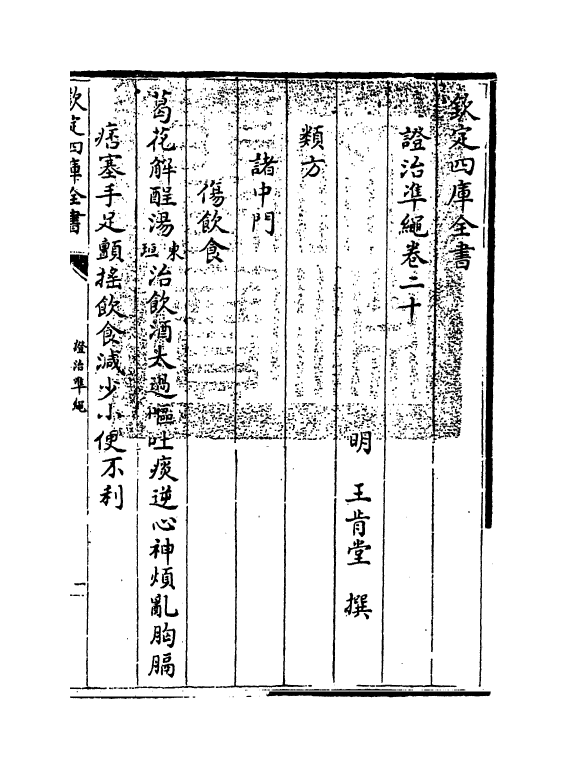 欽定四庫全書
證治準繩卷二十
明 王肯堂 撰
類方
諸中門
傷飲食
葛花解酲湯東垣治飲酒太過嘔吐痰逆心神煩亂胸膈
痞塞手足顫搖飲食減少小便不利
欽定四庫全書
證治準繩
一